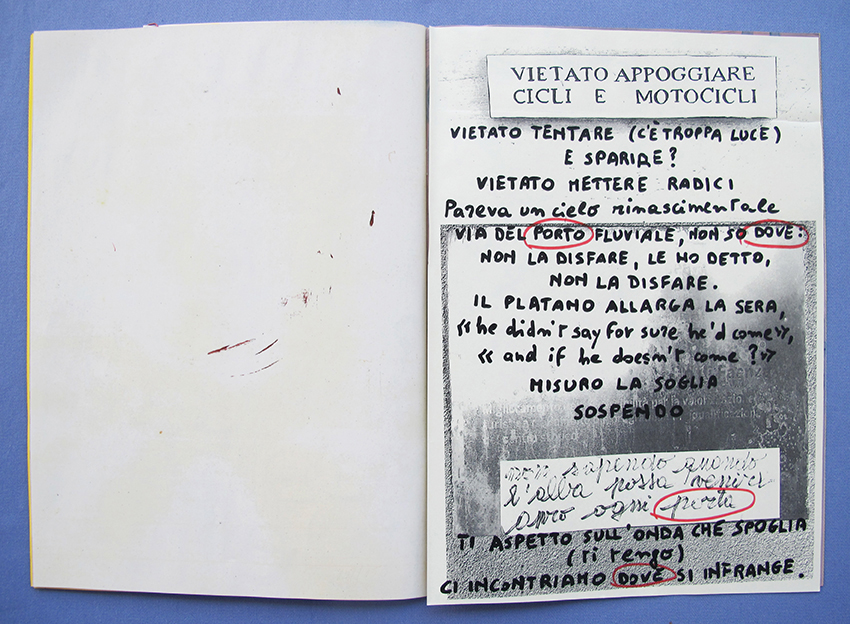 VIETATO APPOGGIARE
CICLI E MOTOCICLI
VIETATO TENTARE (C'È TROPPA LUCE)
E SPARIRE?
VIETATO METTERE RADICI
Pareva un cielo rinascimentale
VIA DEL PORTO FLUVIALE, NON SO DOVE:
NON LA DISFARE, LE HO DETTO,
NON LA DISFARE.
IL PLATANO ALLARGA LA SERA,
«he didn't say for sure he'd come»,
« and if he doesn't come ?»
MISURO LA SOGLIA
SOSPENDO
non sapendo quando
l'alba possa venire
apro ogni porta
TI ASPETTO SULL'ONDA CHE SPOGLIA
(ti tengo)
CI INCONTRIAMO DOVE SI INFRANGE.